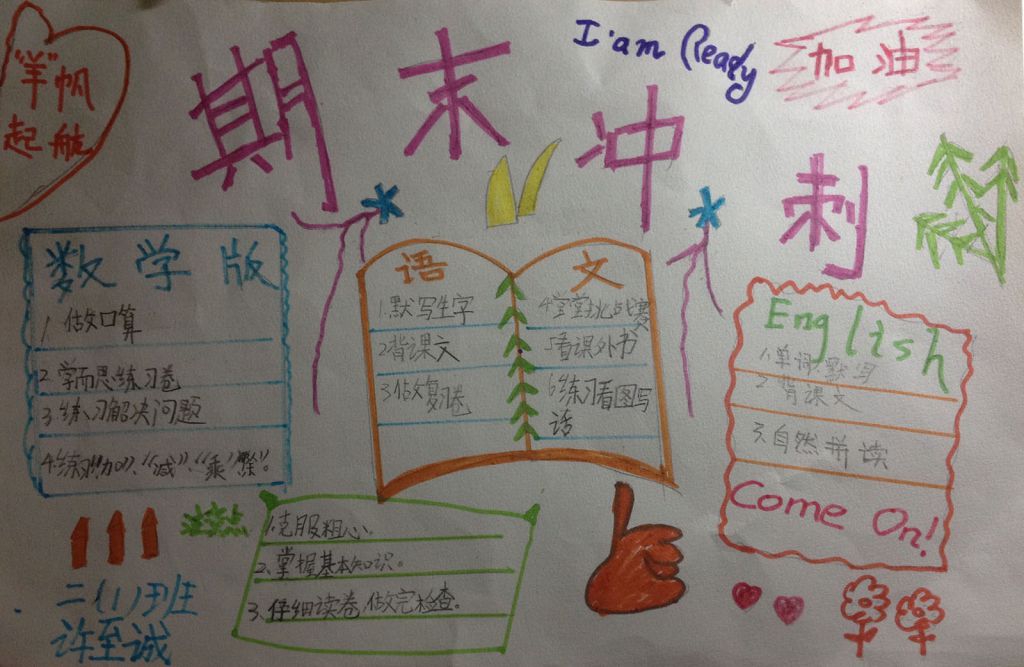 “羊”帆
起航
期末冲刺
I am Ready
加油
数学版
1. 做口算
2. 学而思练习卷
3. 练习解决问题
4. 练习“加”、“减”、“乘”“除”。
语文
1. 默写生字
2 背课文
3. 做复习卷
4 学堂挑战赛
5 看课外书
6 练习看图写
话
English
1. 单词默写
2 背课文
3. 自然拼读
Come On!
注意点
1. 克服粗心。
2. 掌握基本知识。
3. 仔细读卷,做完检查。
二(1)班
许至诚